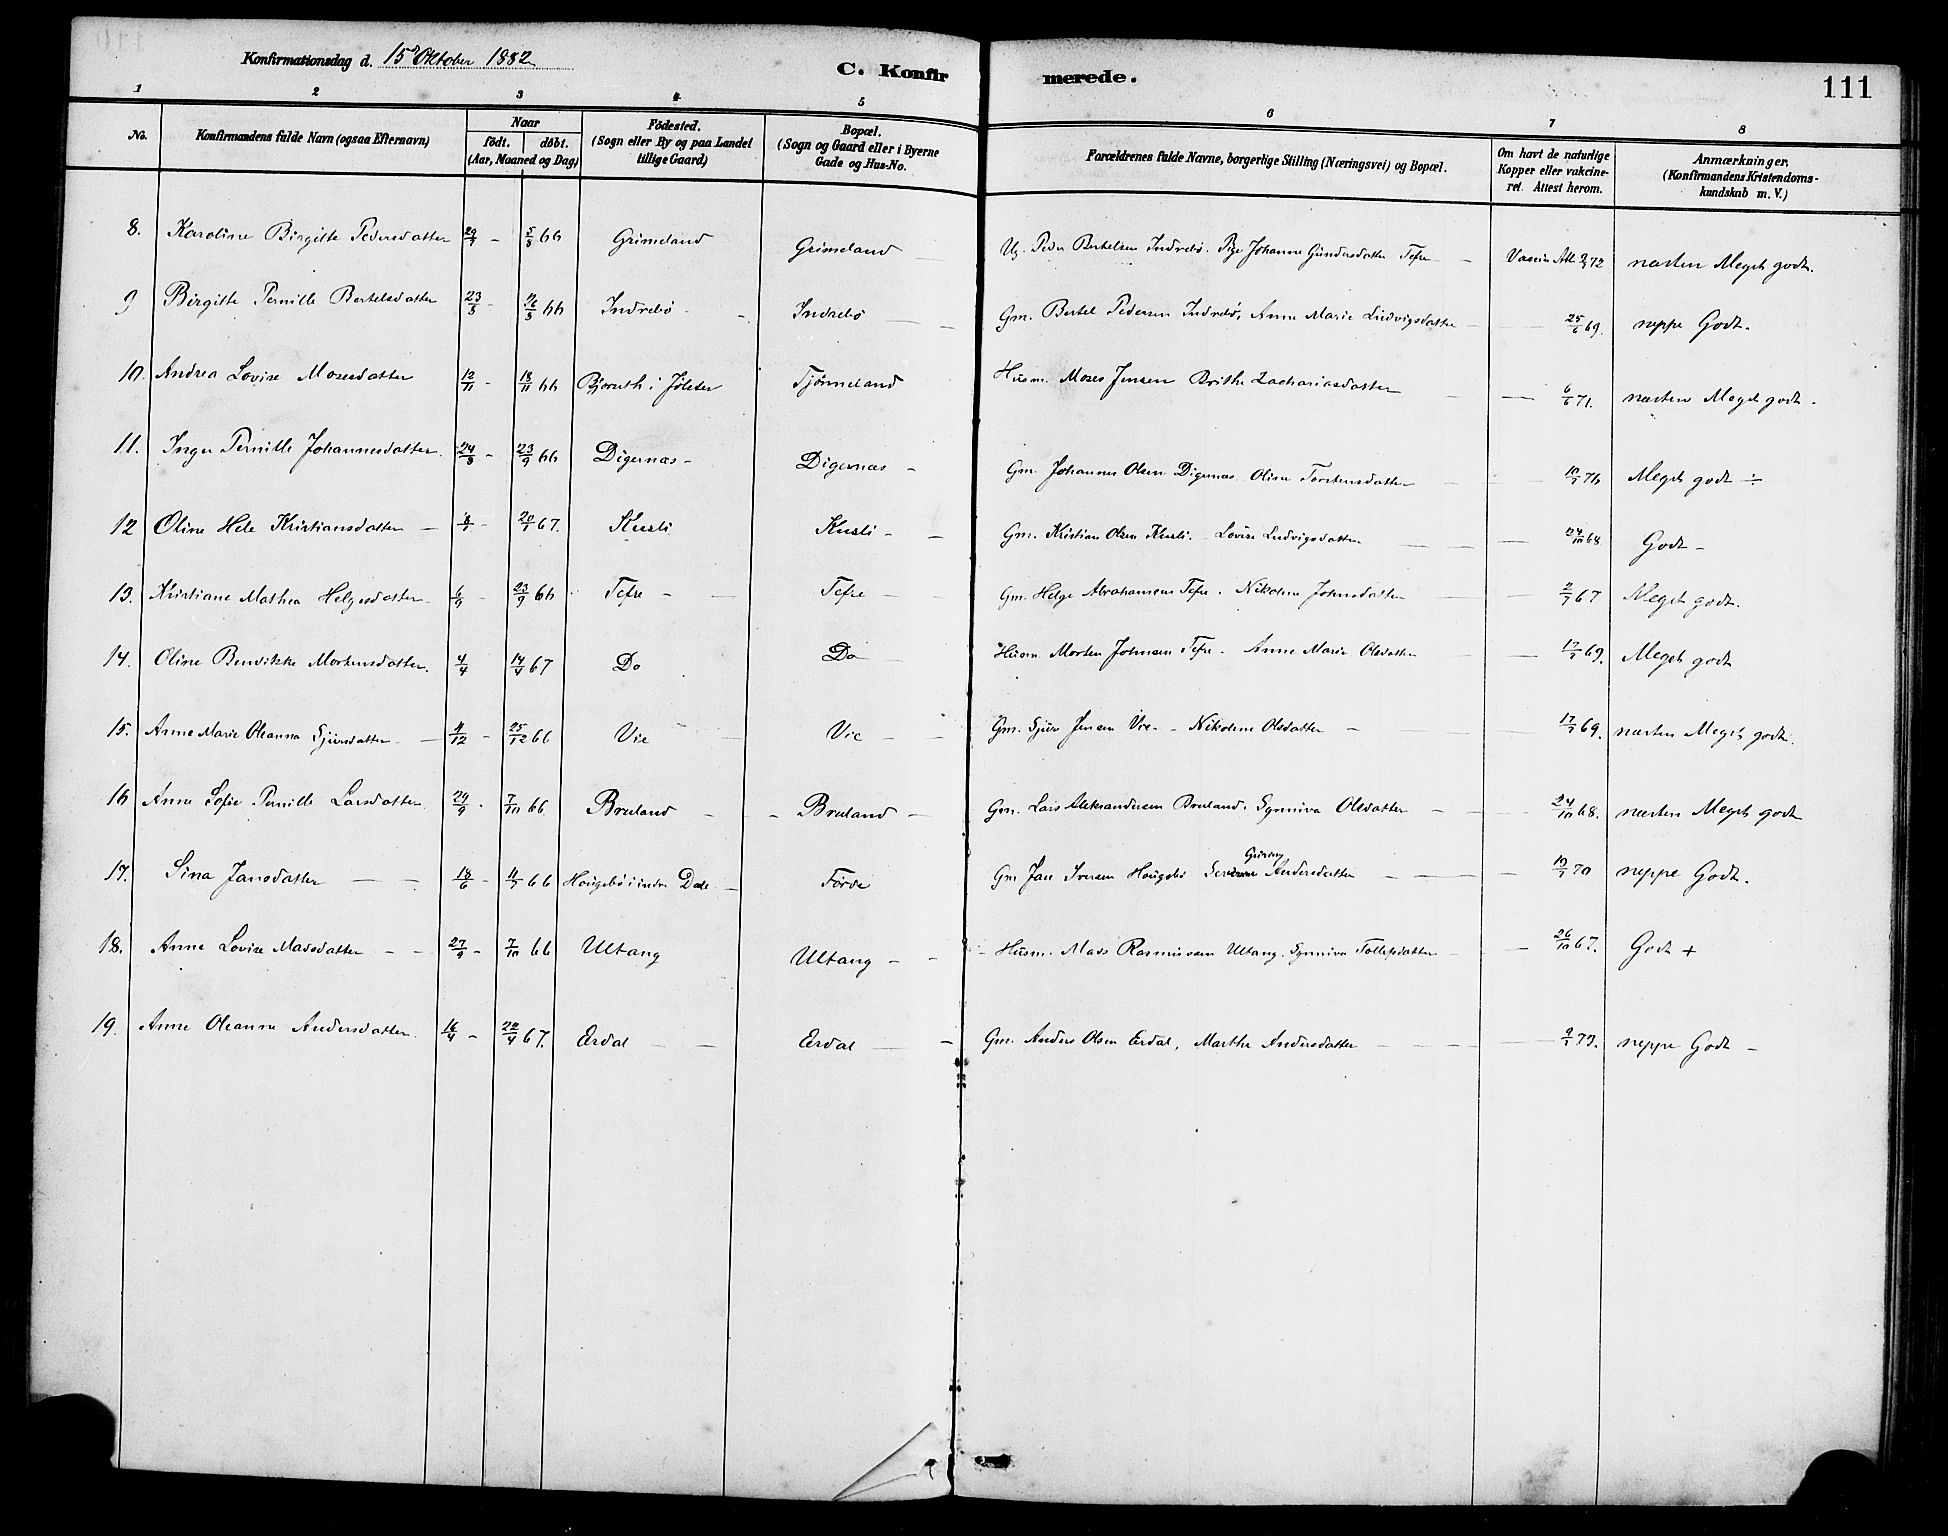 Konfirmationsdag d. 15 Oktober 1882
C. Konfirmerede.
111
1 2 3 4 5 6 7 8
No. Konfirmandens fulde Navn (ogsaa Efternavn) Naar födt. döbt. (Aar, Maaned og Dag) Födested. (Sogn eller By og paa Landet tillige Gaard) Bopæl. (Sogn og Gaard eller i Byerne Gade og Hus-No. Forældrenes fulde Navne, borgerlige Stilling (Næringsvei) og Bopæl. Om havt de naturlige Kopper eller vakcineret. Attest herom. Anmærkninger. (Konfirmandens Kristendomskundskab m. V.)
8. Karoline Birgitte Pedersdatter - 5/8 66 Grimeland Grimeland — Ug. Peder Bertelsen Indrebö. Pige Johanne Gundersdatter Tefre — Vaccin Att. 72 næsten Meget godt.
9 Birgitte Pernille Bertelsdatter 23/3 - 66 Indrebö - Indrebö — Gm. Bertel Pedersen Indrebö, Anne Marie Ludvigsdatter — 25/6 69. neppe Godt.
10. Andrea Lovise Mosesdatter 12/11 - 18/11 66 i Jölster Tjönneland Husm. Moses Jensen Brithe Zachariasdatter — 6/6 71. næsten Meget godt.
11. Inger Pernille Johannesdatter 24/8 - 23/9 66 Digernæs - Digernæs - Gm. Johannes Olsen Digernæs Oline Torstensdatter — Meget godt ÷
12 Oline Hele Kristiansdatter — 8/1 - 20/1 67. Kusli Kusli - Gm. Kristian Olsen Kusli. - Lovise Ludvigsdatter — 24/10 68 Godt -
13. Kristiane Mathea Helgesdatter 6/9 - 23/9 66 Tefre - Tefre — Gm. Helge Abrahamsen Tefre. Nikoline Johnsdatter — 2/7 67 Meget godt.
14. Oline Benvikke Mortensdatter. 4/4 14/4 67 Do Do — Husm. Morten Johnsen Tefre. Anne Marie Olsdatter — 17/7 69. Meget godt
15. Anne Marie Oleanna Sjursdatter — 4/12 - 25/12 66 Vie Vie — Gm. Sjur Jensen Vie - Nikoline Olsdatter — 17/7 69. næsten Meget godt.
16 Anne Sofie Pernille Larsdatter 29/9 - 7/10 66 Bruland - Bruland — Gm. Lars Aleksandersen Bruland. Synniva Olsdatter — 24/10 68. næsten Meget godt
17. Sina Jansdatter — 18/6 - 11/7 66 Hougebö i indre Dale - Förde Gm Jan Iversen Hougebö Andersdatter — 19/7 70 neppe Godt.
18. Anne Lovise Madsdatter - - 27/9 - 7/10 66 Ultang Ultang - - Husm. Mads Rasmussen Ultang. Synniva Tollefsdatter — 26/10 67. Godt +
19. Anne Oleanna Andersdatter. 16/4 - 22/4 67. Erdal — Erdal — Gm. Anders Olsen Erdal, Marthe Andersdatter — neppe Godt -